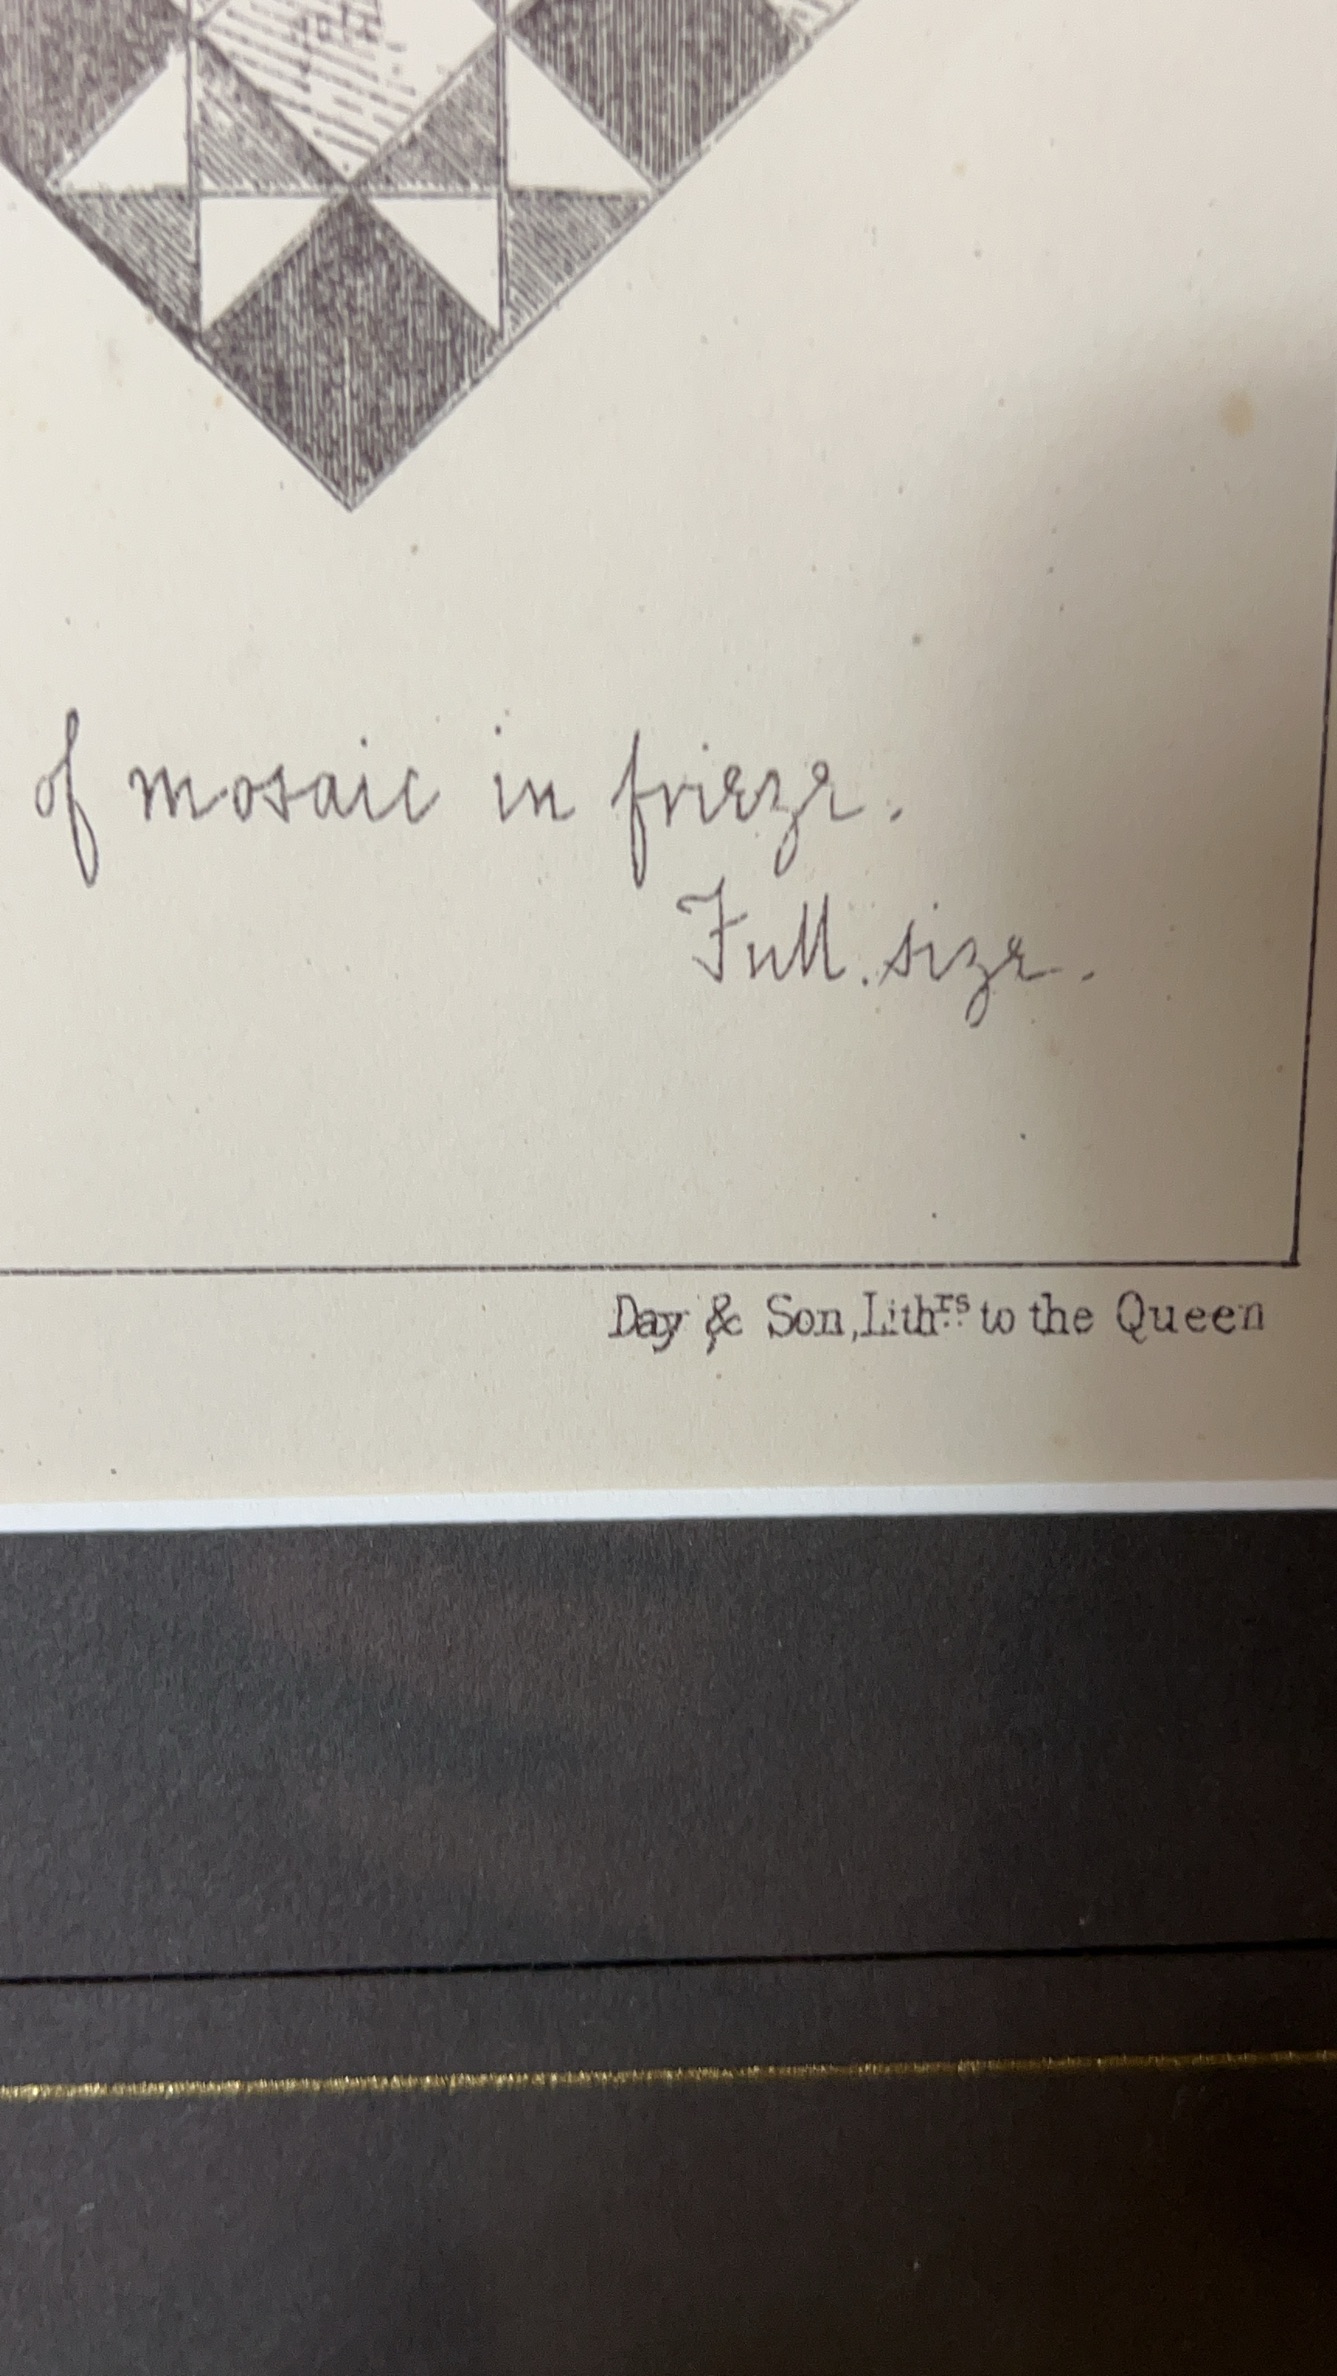 of mosaic in frieze.
Full. size.
Day & Son, Lithrs to the Queen